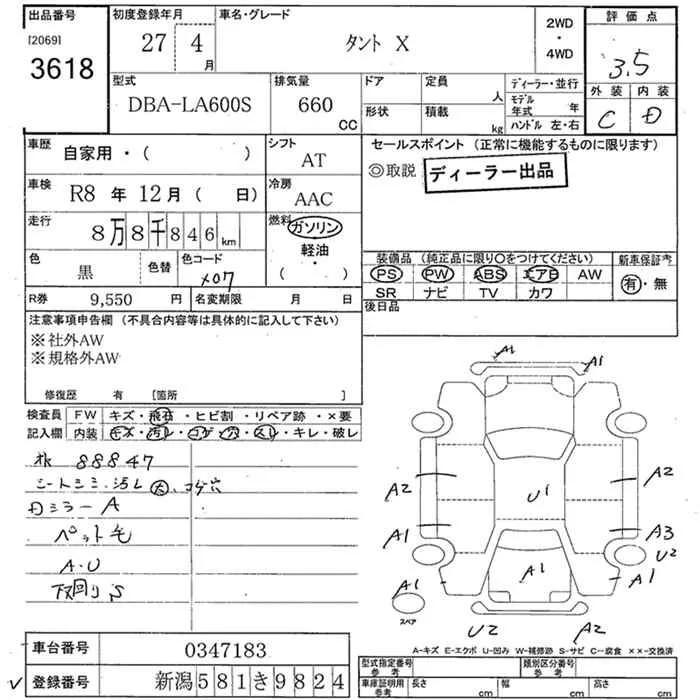 出品番号
[2069]
3618
初度登録年月
27 4
月
車名・グレード
タント X
2WD
・
4WD
評価点
3.5
外装 内装
C D
型式
DBA-LA600S
排気量
660
CC
ドア
定員
人
形状
積載
kg
ディーラー・並行
モデル
年式 年
ハンドル 左・右
車歴
自家用・( )
シフト
AT
車検
R8 年 12月 ( 日)
冷房
AAC
走行
8万8千846km
燃料
ガソリン
軽油
・
( )
色
黒
色替
色コード
X07
R券 9,550 円
名変期限 月 日
セールスポイント (正常に機能するものに限ります)
◎取説 ディーラー出品
装備品 (純正品に限り○をつけてください)
新車保証書
PS PW ABS エアB AW
有・無
SR ナビ TV カワ
後日品
注意事項申告欄 (不具合内容等は具体的に記入して下さい)
※社外AW
※規格外AW
修復歴 有 [箇所 ]
検査員 FW キズ・飛石・ヒビ割・リペア跡・×要
記入欄 内装 キズ・汚レ・コゲ・穴・スレ・キレ・破レ
88847
シートシミ・汚レ大、コゲ穴
Dミラー A
ペット毛
A・U
下回り S
A1
A1
A2
A2
U1
A1
A3
U2
A1
A1
A1
スペア
U2
A2
A-キズ E-エクボ U-凹み W-補修跡 S-サビ C-腐食 ××-交換済
車台番号 0347183
登録番号 新潟581き9824
型式指定番号
参考
類別区分番号
参考
車庫証明用
参考
長さ cm
幅 cm
高さ cm